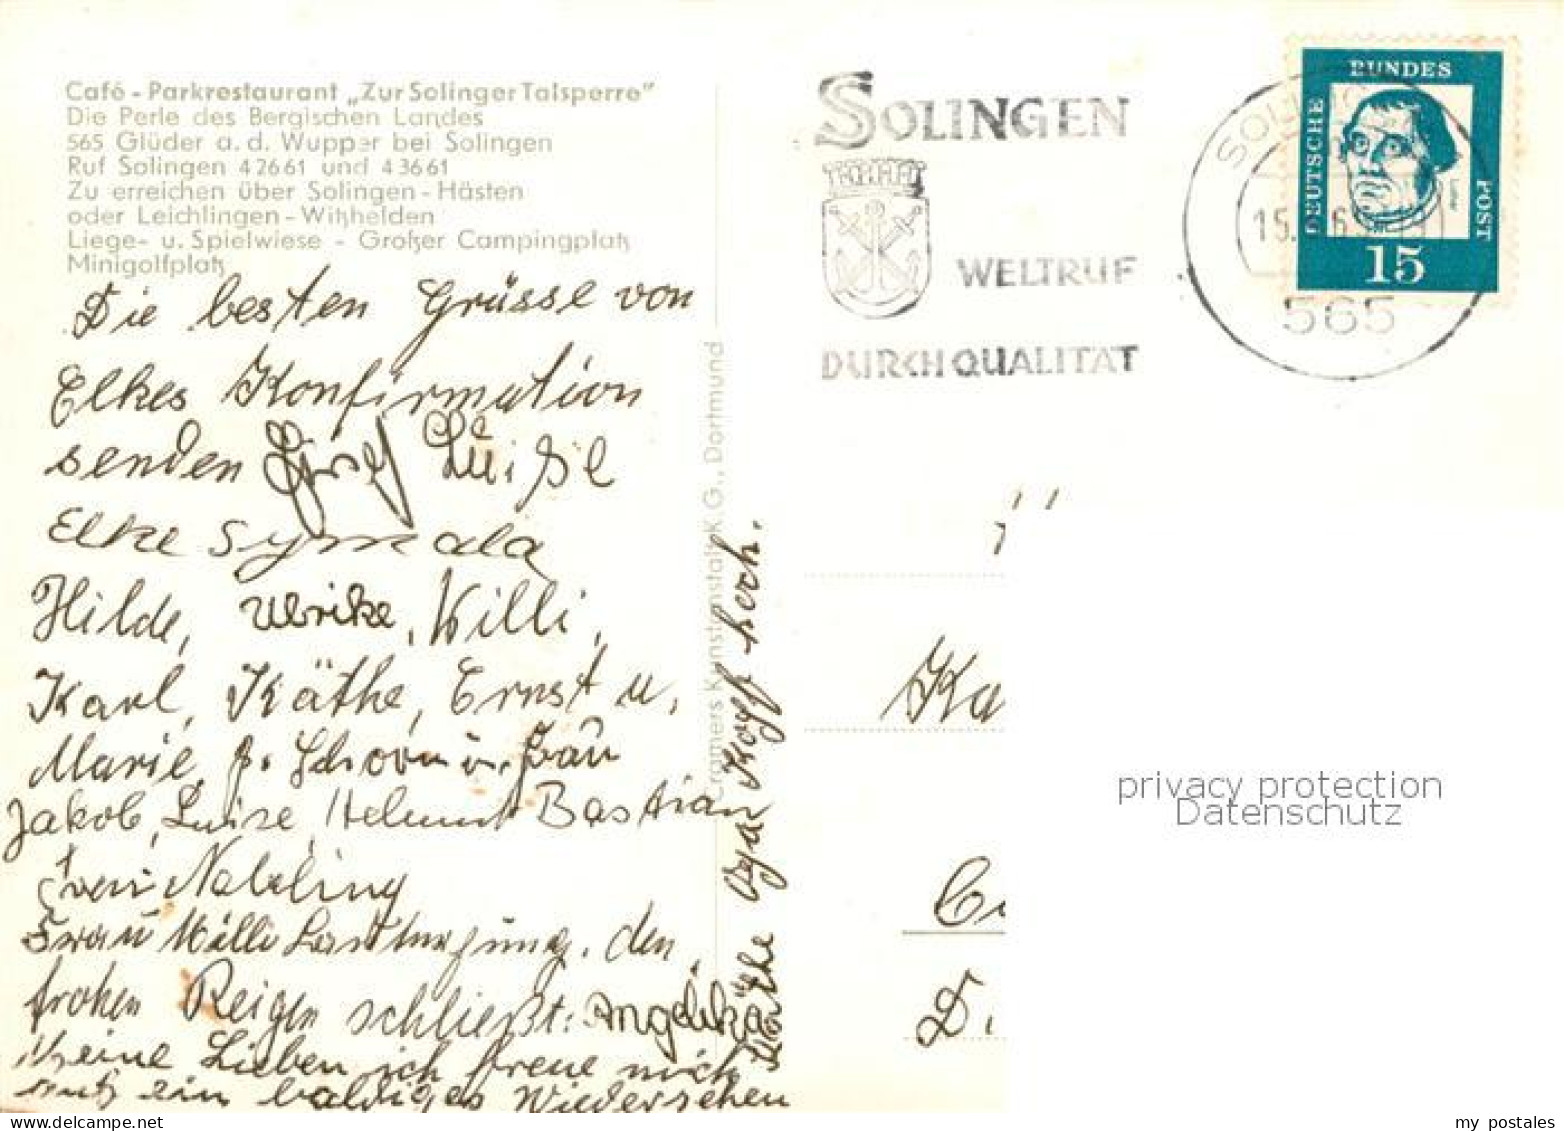 Café - Parkrestaurant „Zur Solinger Talsperre"
Die Perle des Bergischen Landes
565 Glüder a. d. Wupper bei Solingen
Ruf Solingen 4 26 61 und 4 36 61
Zu erreichen über Solingen - Hästen
oder Leichlingen - Witzhelden
Liege- u. Spielwiese - Großer Campingplatz
Minigolfplatz
Die besten Grüsse von
Elkes Konfirmation
senden Luise
Elke
Hilde, Ulrike, Willi,
Karl, Käthe, Ernst u.
Marie, Schorn u. Frau
Jakob, Luise, Helmut Bastian
Frau Willi den
frohen Reigen schließt: Angelika
Meine Lieben ich freue mich
ein baldiges Wiedersehen
Käthe
Cramers Kunstanstalt K.G., Dortmund
SOLINGEN
WELTRUF
DURCH QUALITÄT
SOLINGEN
15.
565
BUNDES
DEUTSCHE
POST
15
Ka
D.
privacy protection
Datenschutz
my postales